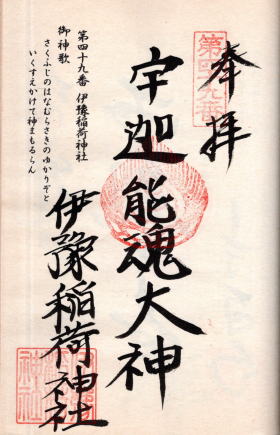 奉拝
第四十九番
宇迦能魂大神
伊豫稲荷神社
第四十九番 伊豫稲荷神社
御神歌
さくふじのはなむらさきのゆかりぞと
いくすえかけて神まもるらん